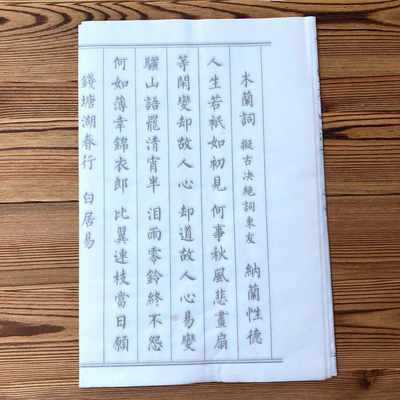 木蘭詞 擬古決絕詞柬友 納蘭性德
人生若祇如初見 何事秋風悲畫扇
等閑變却故人心 却道故人心易變
驪山語罷清宵半 泪雨零鈴終不怨
何如薄幸錦衣郎 比翼連枝當日願
錢塘湖春行 白居易